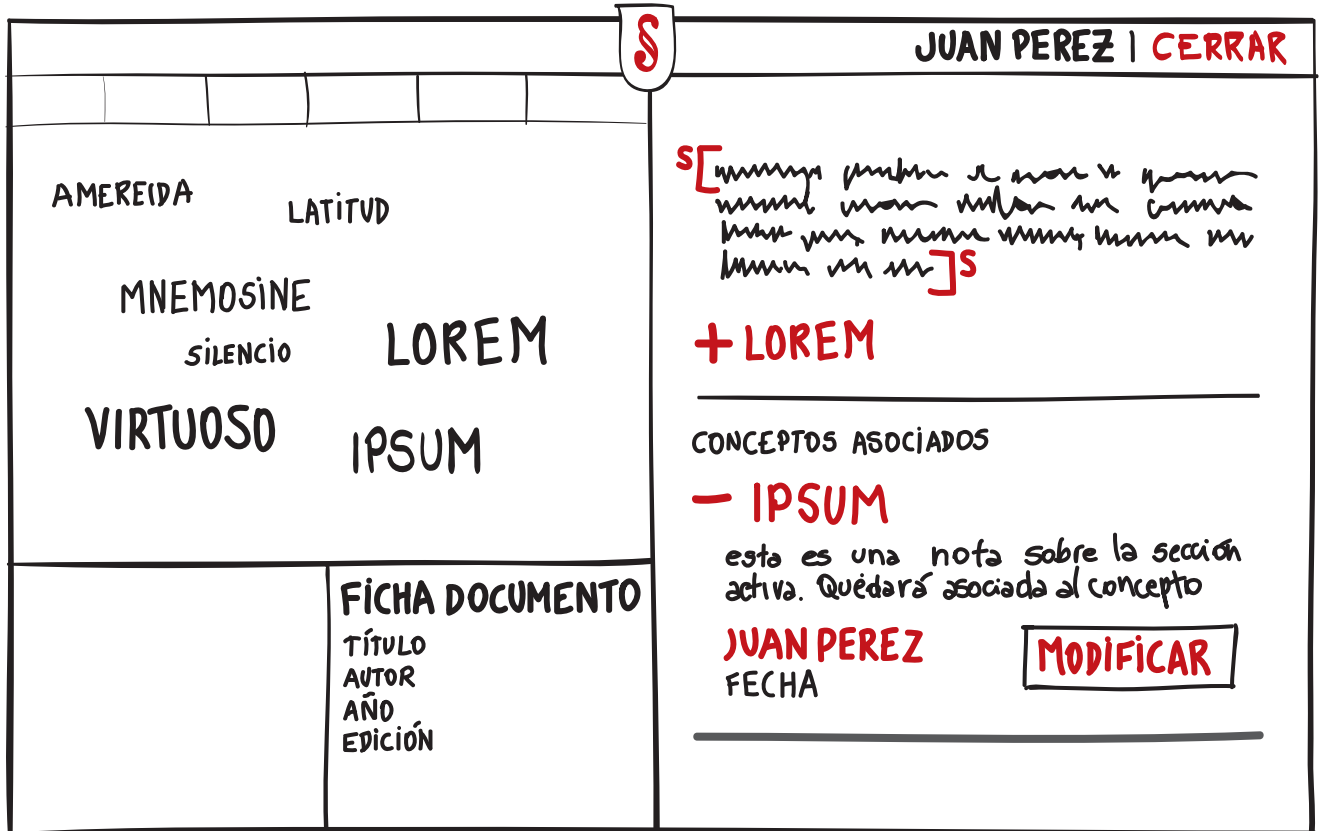 §
JUAN PEREZ | CERRAR
AMEREIDA
LATITUD
MNEMOSINE
SILENCIO
LOREM
VIRTUOSO
IPSUM
FICHA DOCUMENTO
TÍTULO
AUTOR
AÑO
EDICIÓN
S[
]S
+ LOREM
CONCEPTOS ASOCIADOS
- IPSUM
esta es una nota sobre la sección
activa. Quédará asociada al concepto
JUAN PEREZ
FECHA
MODIFICAR